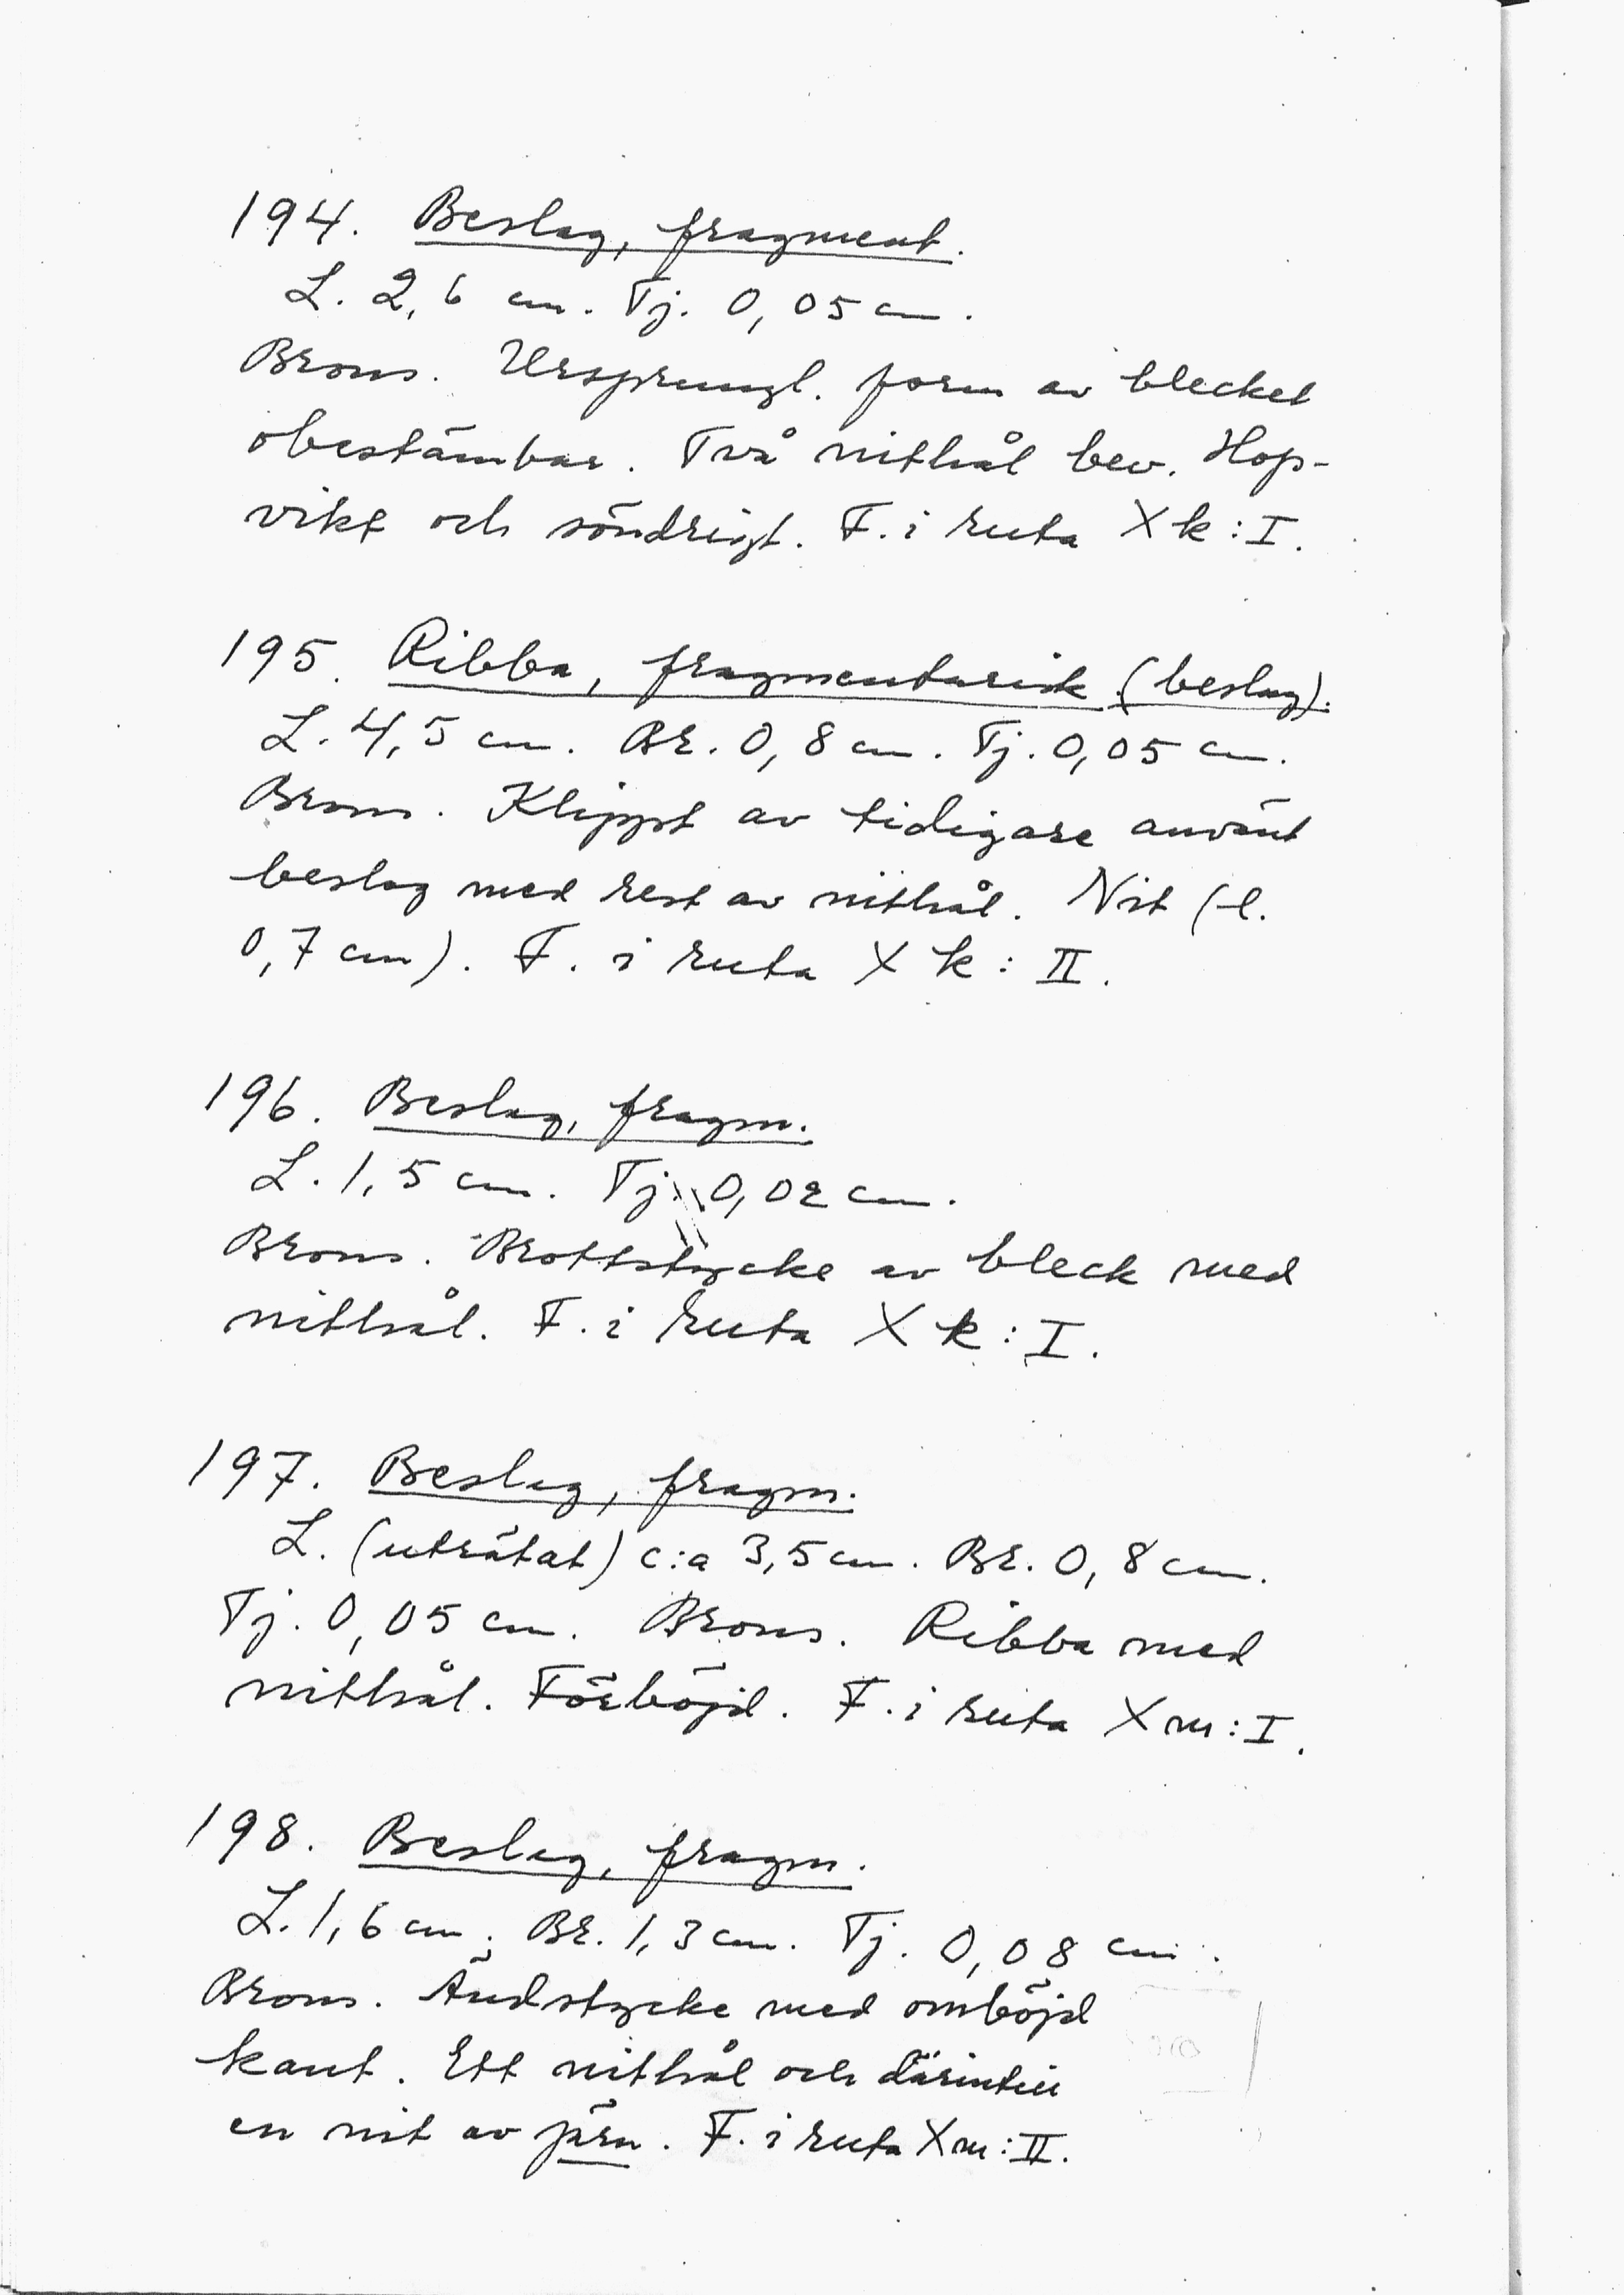 194. Beslag, fragment.
L. 2,6 cm. Tj. 0,05 cm.
Brons. Ursprungl. form av blecket
obestämbar. Två nithål bev. Hop-
vikt och söndrigt. F. i ruta X k : I.
195. Ribba, fragmentarisk (beslag).
L. 4,5 cm. Br. 0,8 cm. Tj. 0,05 cm.
Brons. Klippt av tidigare använt
beslag med rest av nithål. Nit (l.
0,7 cm). F. i ruta X k : II.
196. Beslag, fragm.
L. 1,5 cm. Tj. 0,02 cm.
Brons. Brottstycke av bleck med
nithål. F. i ruta X k : I.
197. Beslag, fragm.
L. (uträtat) c:a 3,5 cm. Br. 0,8 cm.
Tj. 0,05 cm. Brons. Ribba med
nithål. Förböjd. F. i ruta X m : I.
198. Beslag, fragm.
L. 1,6 cm. Br. 1,3 cm. Tj. 0,08 cm.
Brons. Ändstycke med omböjd
kant. Ett nithål och därintill
en nit av järn. F. i ruta X m : II.